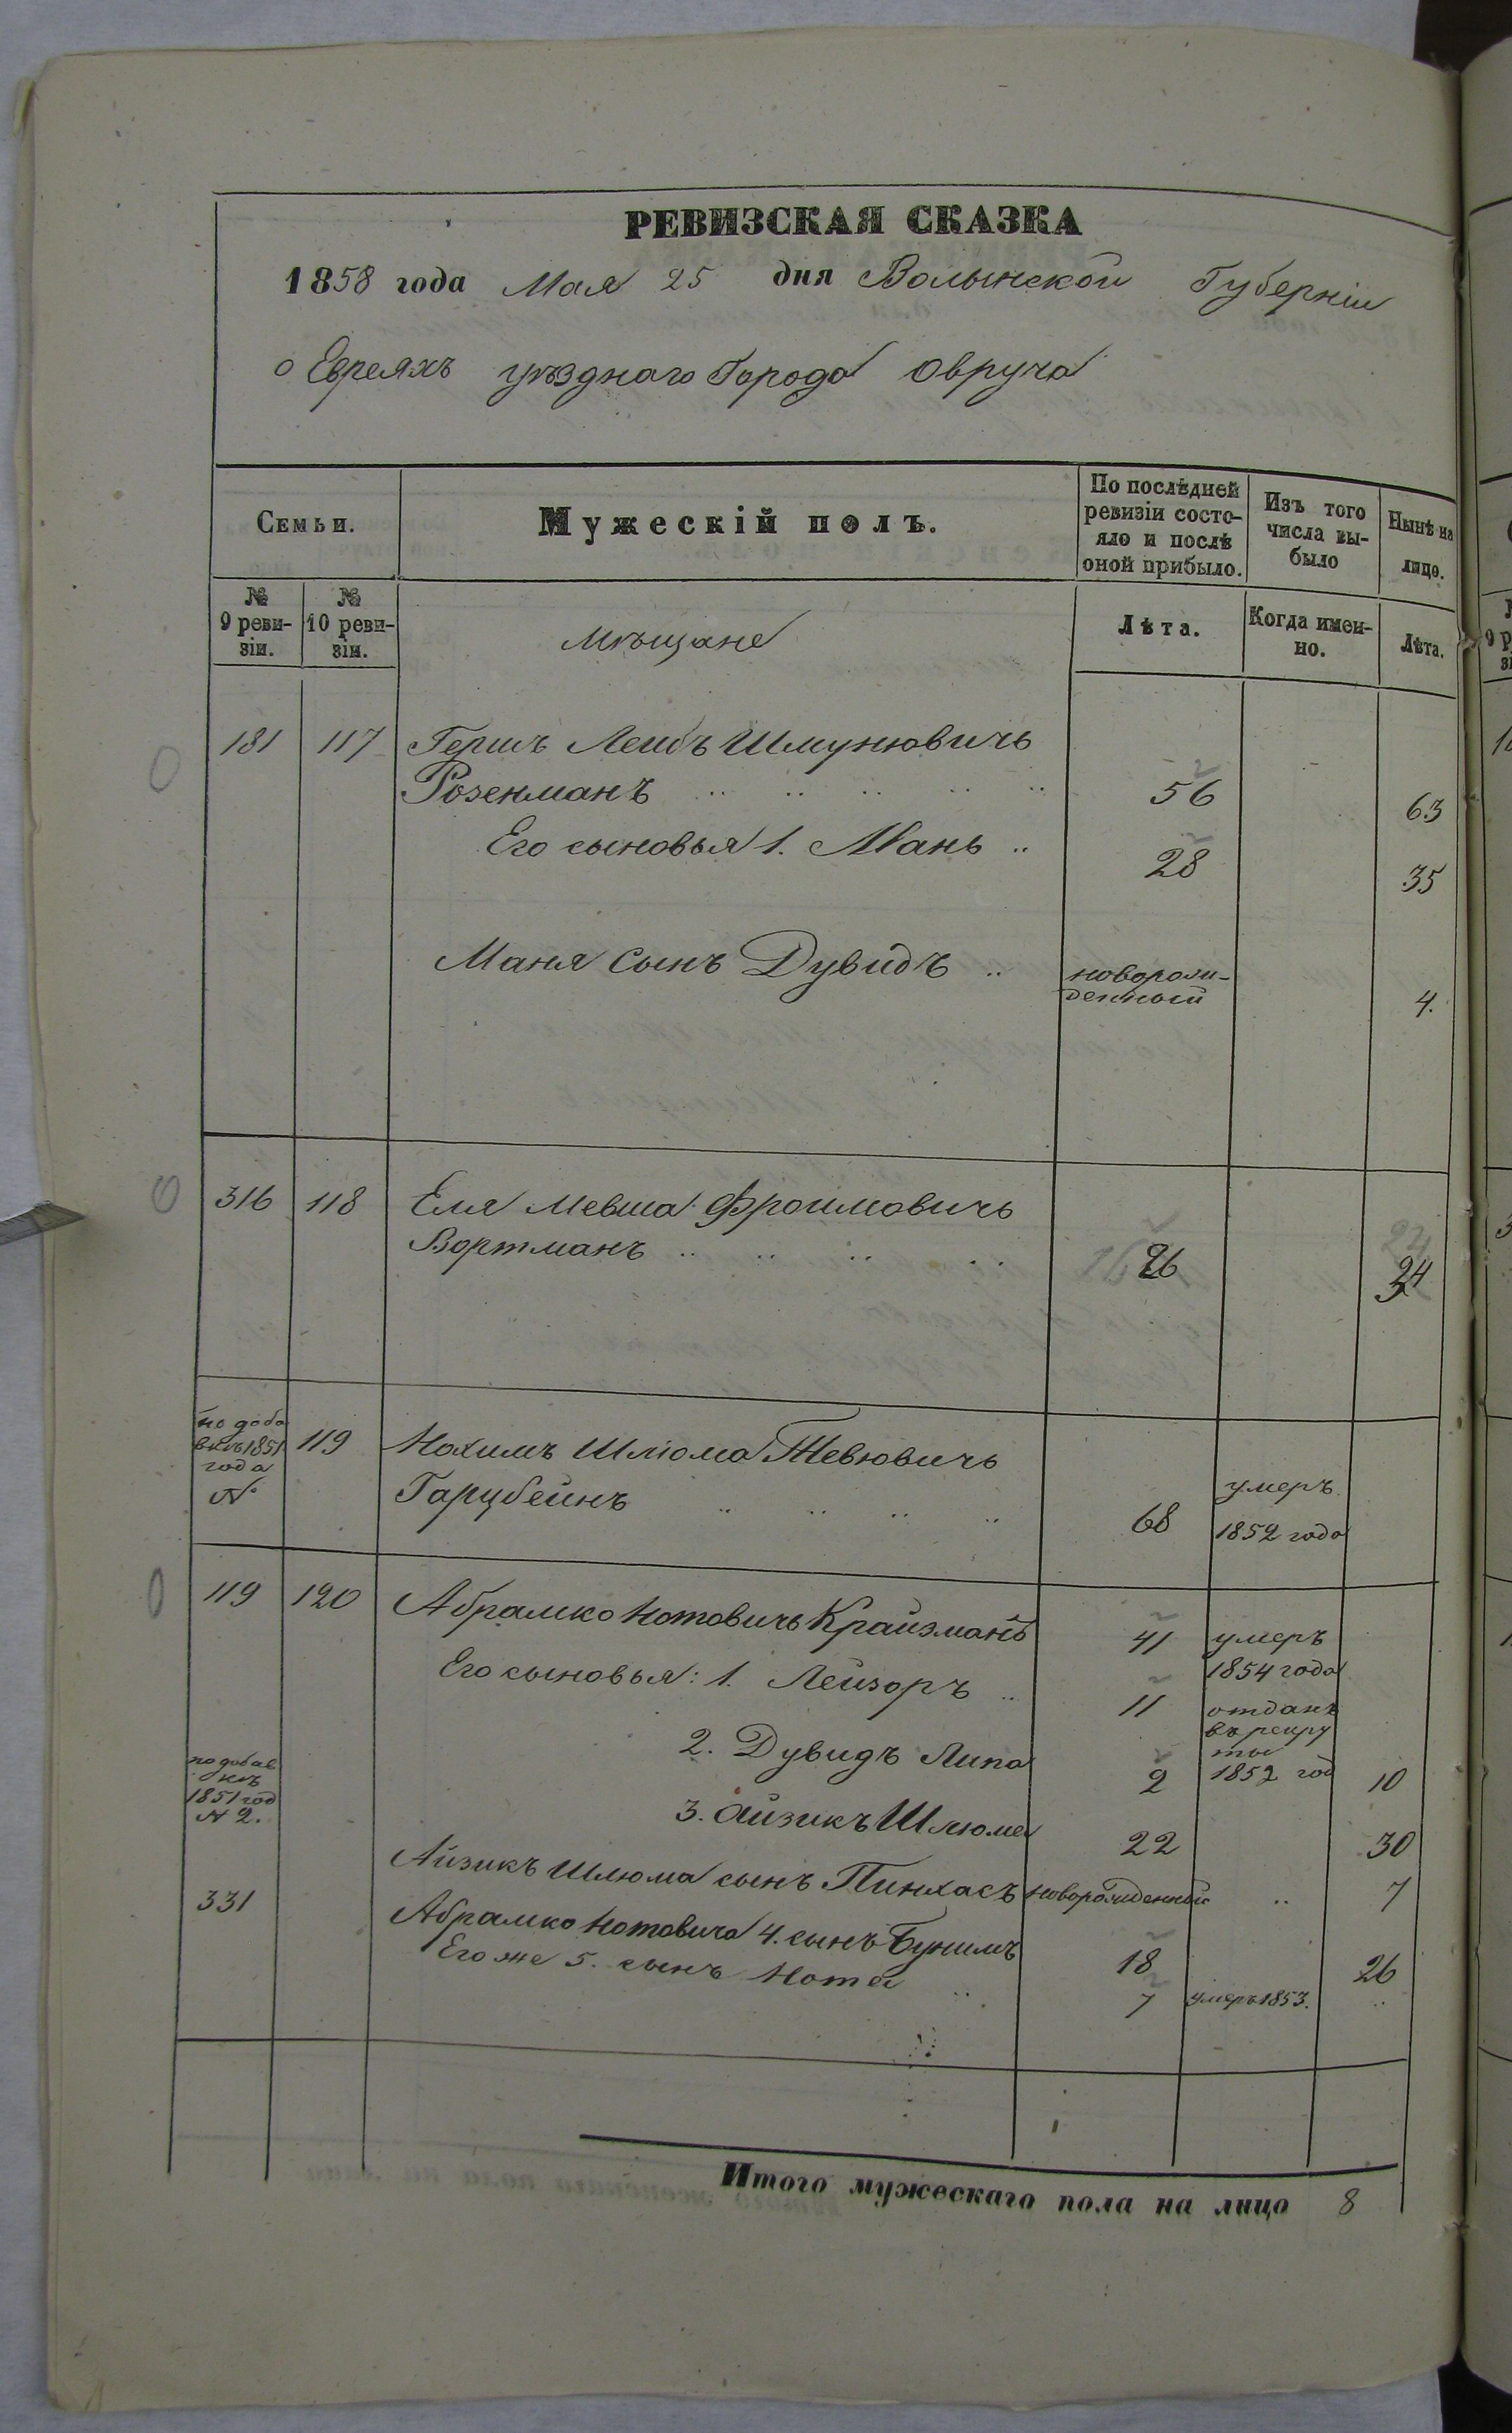 РЕВИЗСКАЯ СКАЗКА
1858 года Мая 25 дня Волынской Губерніи
о Евреяхъ уѣзднаго Города Овруча
Семьи.
Мужескій полъ.
По послѣдней ревизіи состояло и послѣ оной прибыло.
Изъ того числа выбыло
Нынѣ на лицо.
№ 9 ревизіи.
№ 10 ревизіи.
Мѣщане
Лѣта.
Когда именно.
Лѣта.
181 117 Гершъ Лейбъ Шмунювичь
Розенманъ 56 63
Его сыновья 1. Мань 28 35
Маня сынъ Дувидъ новорожденный 4.
316 118 Еля Мевша Фроимовичь
Вортманъ 26 34
по добавкѣ 1851 года № 119 Нохимъ Шлюма Тевювичь
Гарцбейнъ 68 умеръ 1852 года
119 120 Абрамко Нотовичь Крайзманъ 41 умеръ 1854 года
Его сыновья: 1. Лейзоръ 11 отданъ въ рекруты 1852 год
2. Дувидъ Липа 2 10
по добавкѣ 1851 год № 2. 3. Айзикъ Шлюма 22 30
Айзикъ Шлюма сынъ Пинхасъ новорожденный 7
331 Абрамко Нотовича 4. сынъ Бунимъ 18 26
Его же 5. сынъ Нота 7 умеръ 1853.
Итого мужескаго пола на лицо 8